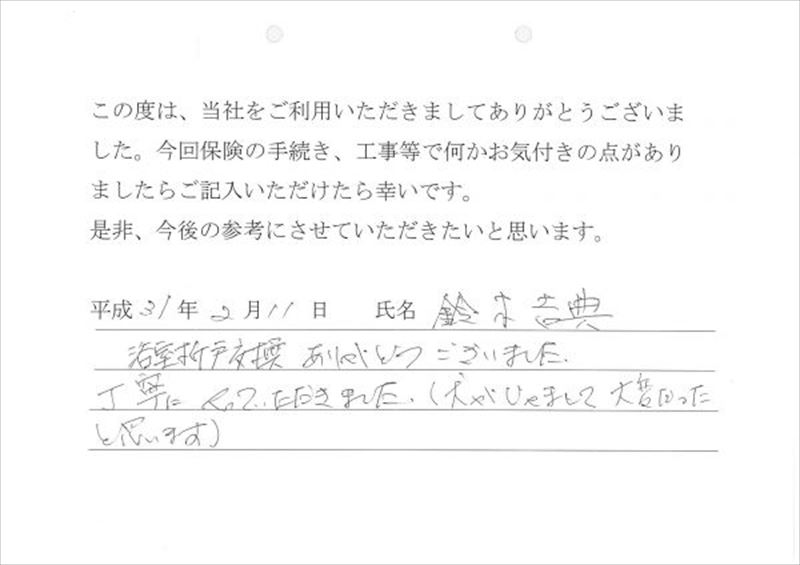 この度は、当社をご利用いただきましてありがとうございま
した。今回保険の手続き、工事等で何かお気付きの点があり
ましたらご記入いただけたら幸いです。
是非、今後の参考にさせていただきたいと思います。
平成 31 年 2 月 11 日 氏名 鈴木吉典
浴室折戸交換 ありがとうございました.
丁寧に やっていただきました.(犬がじゃまして 大変だった
と思います)